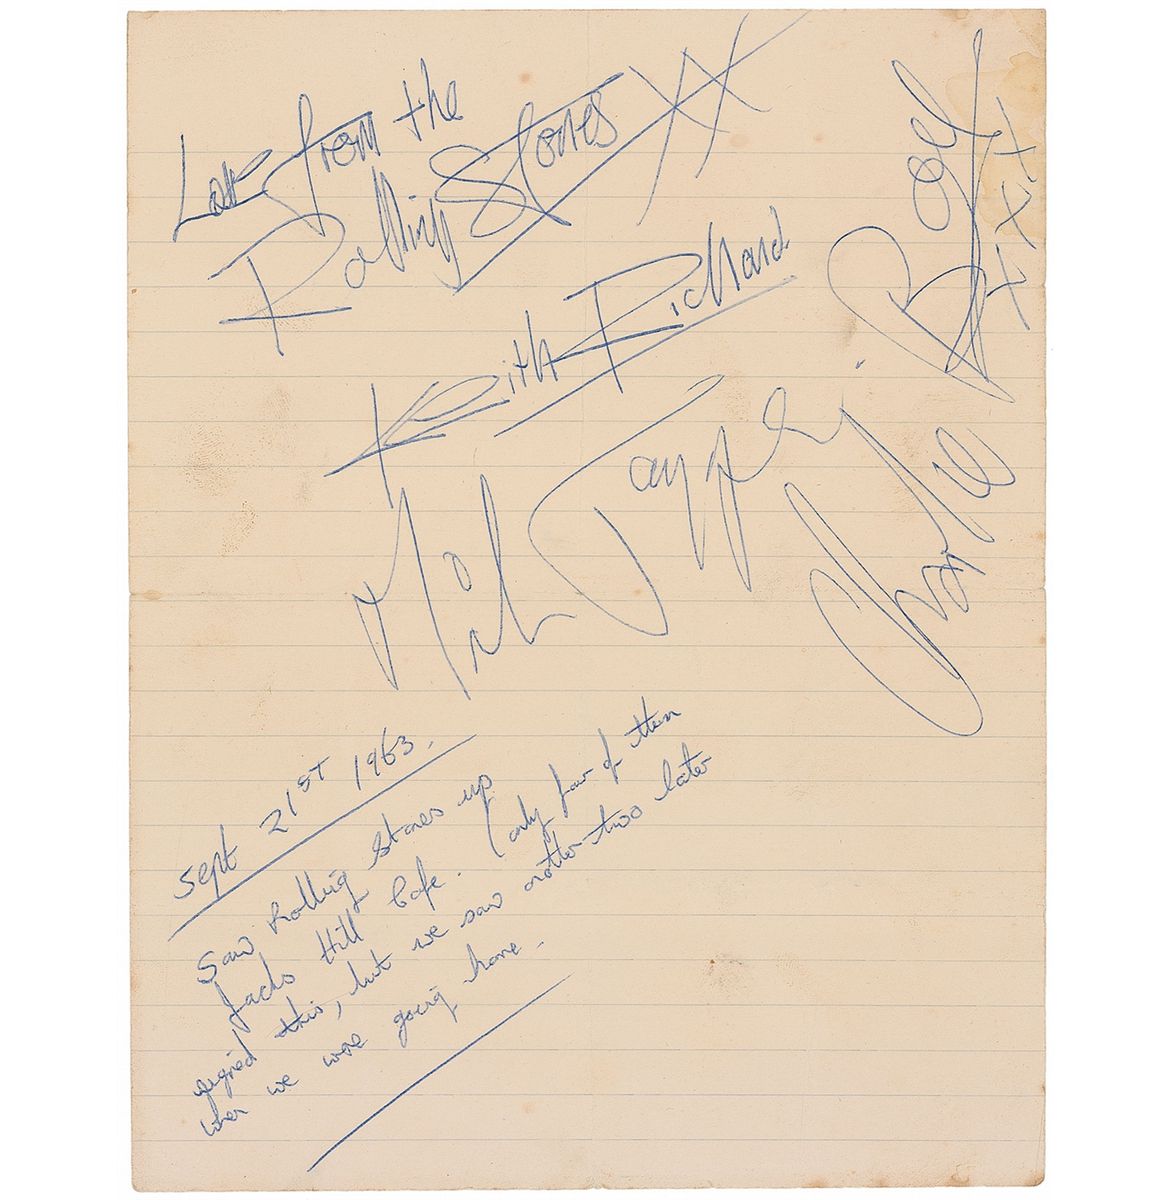 Love from the
Rolling Stones XX
Keith Richard
Mick Jagger.
Charlie
Boy
XXXX
Sept 21ST 1963.
Saw Rolling Stones up
Jacks Hill Cafe. (only four of them
signed this, but we saw other two later
when we were going home.